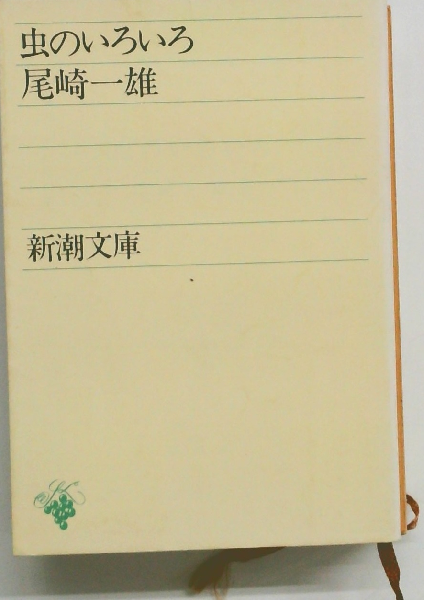 虫のいろいろ
尾崎一雄
新潮文庫